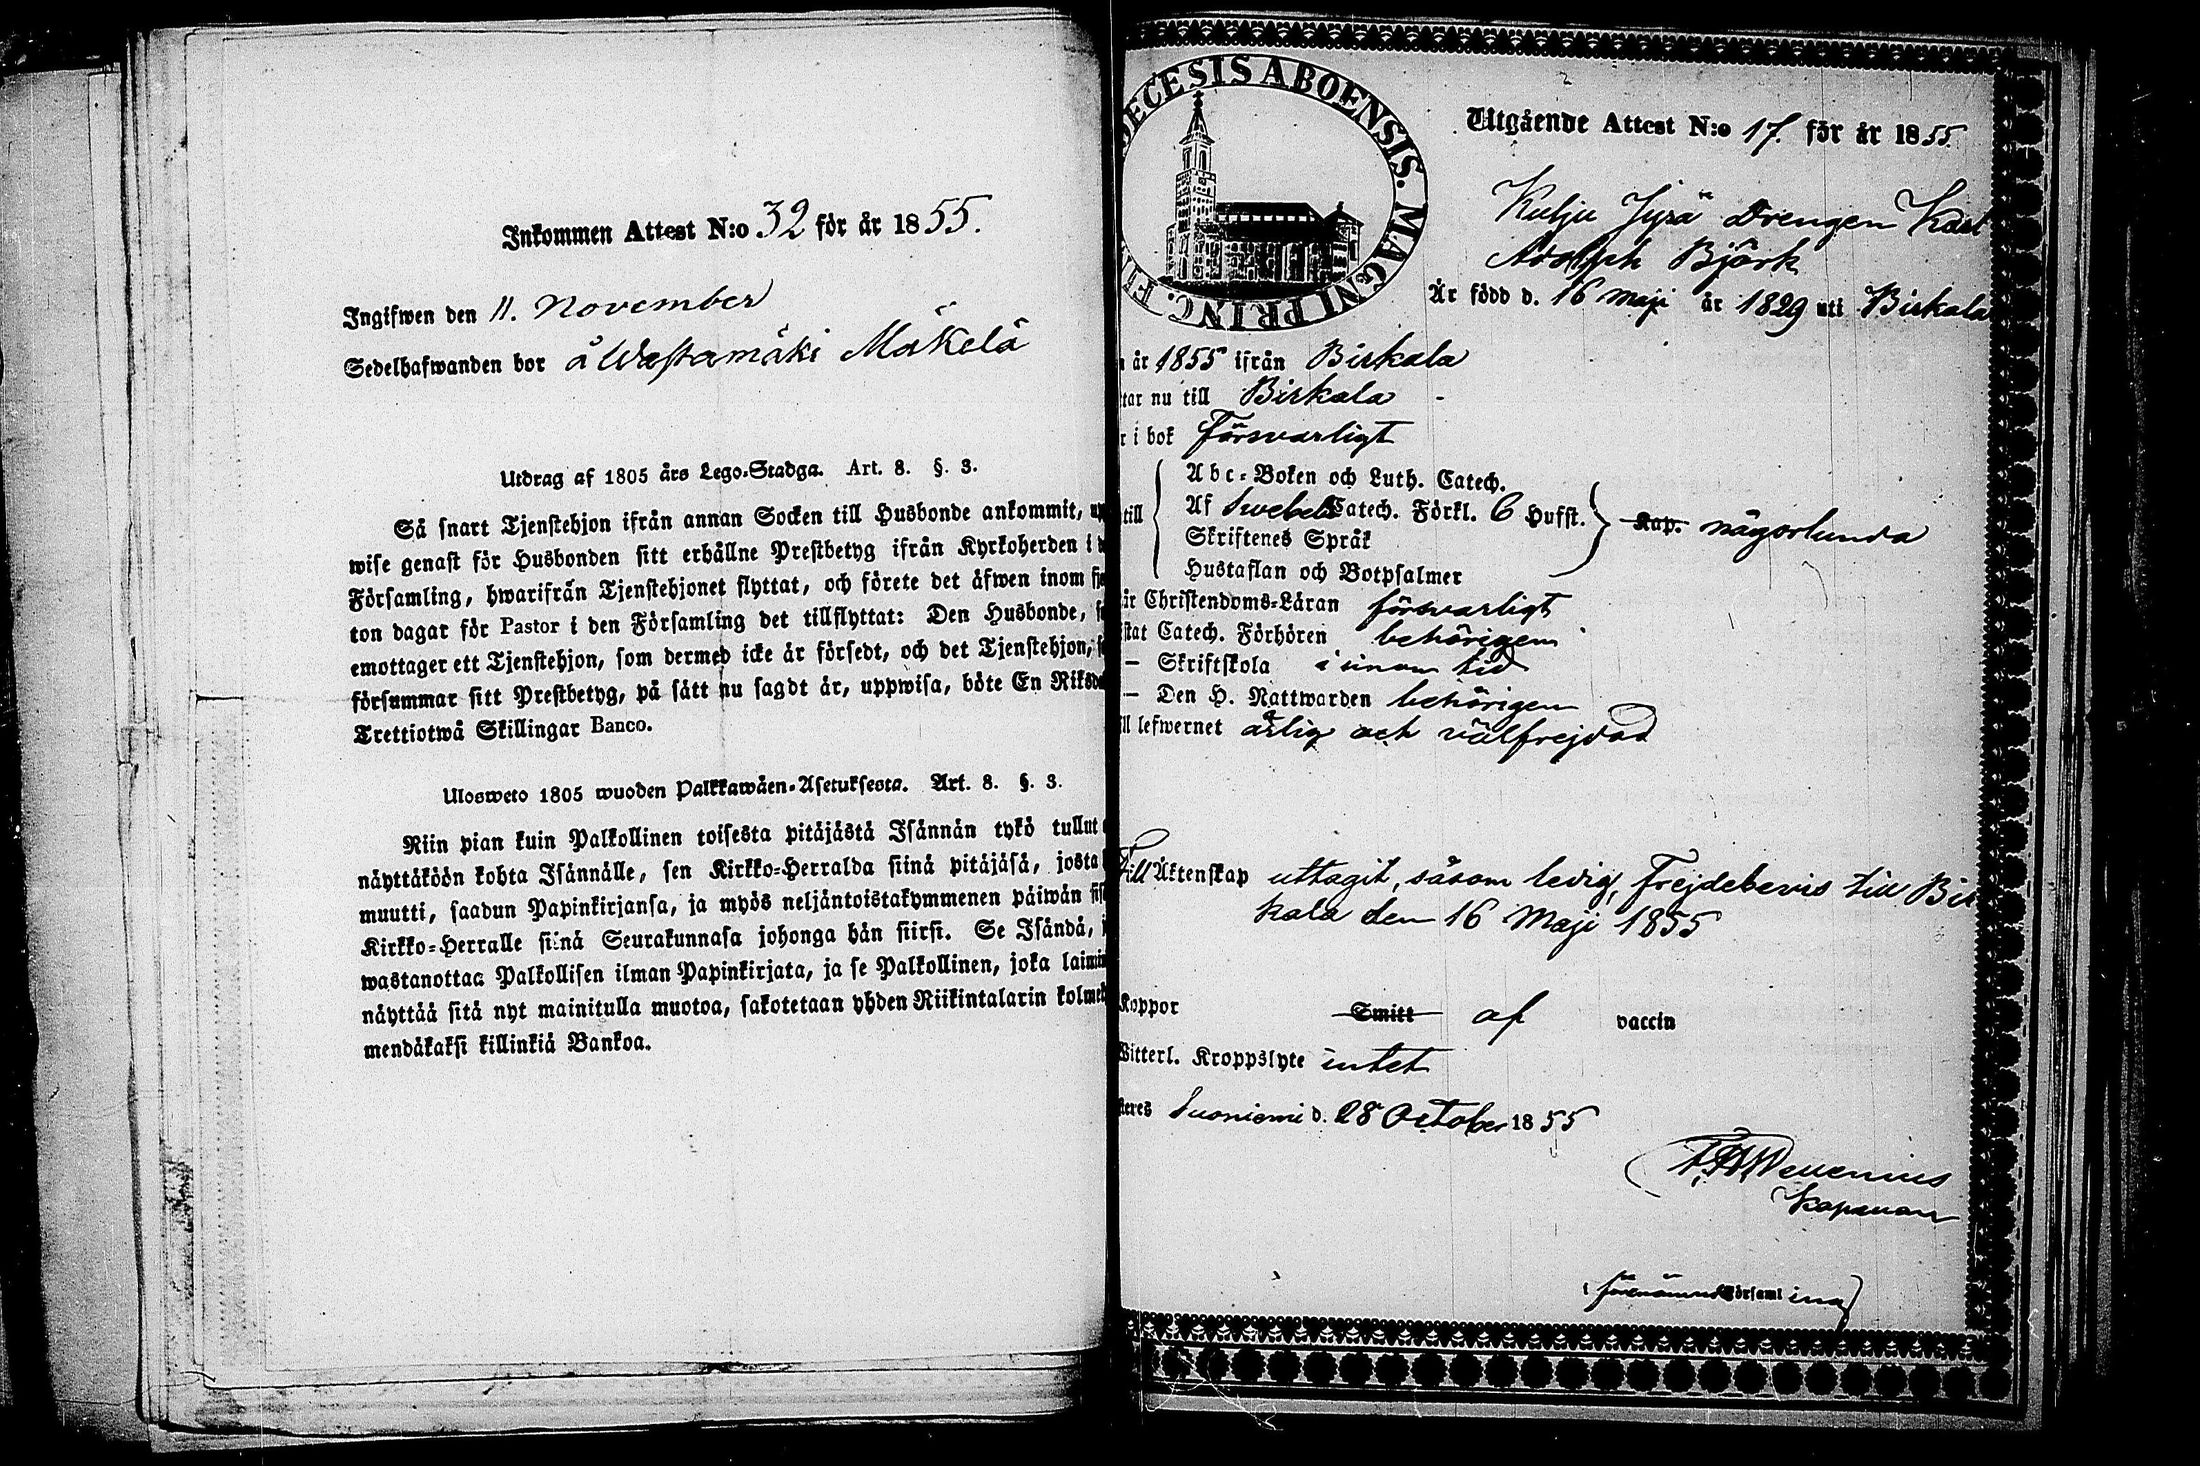 Inkommen Attest N:o 32 för år 1855.
Ingifwen den 11. November
Sedelhafwanden bor å Westermäki Mäkelä
Utdrag af 1805 års Lego-Stadga. Art. 8. §. 3.
Så snart Tjenstehjon ifrån annan Socken till Husbonde ankommit, upp
wise genast för Husbonden sitt erhållne Prestbetyg ifrån Kyrkoherden i
Församling, hwarifrån Tjenstehjonet flyttat, och förete det äfwen inom fj
ton dagar för Pastor i den Församling det tillflyttat: Den Husbonde, s
emottager ett Tjenstehjon, som dermed icke är försedt, och det Tjenstehjon, s
försummar sitt Prestbetyg, på sätt nu sagdt är, uppwisa, böte En Riksda
Trettiotwå Skillingar Banco.
Ulosweto 1805 wuoden Palkkawäen-Asetuksesta. Art. 8. §. 3.
Niin pian kuin Palkollinen toisesta pitäjästä Isännän tykö tullut
näyttäköön kohta Isännälle, sen Kirkko-Herralda siinä pitäjäsä, josta
muutti, saadun Papinkirjansa, ja myös neljäntoistakymmenen päiwän sis
Kirkko-Herralle siinä Seurakunnasa johonga hän siirsi. Se Isändä, j
wastanottaa Palkollisen ilman Papinkirjata, ja se Palkollinen, joka laimin
näyttää sitä nyt mainitulla muotoa, sakotetaan yhden Riikintalarin kolmek
mendäkaksi killinkiä Bankoa.
DECESIS ABOENSIS. MAGNI PRINC. FIN
Utgående Attest N:o 17. för år 1855.
Kulju Jyrä Drengen Karl
Adolph Björk
Är född d. 16 Maji år 1829 uti Birkala
år 1855 ifrån Birkala
tar nu till Birkala
r i bok försvarligt
till
Abc-Boken och Luth. Catech.
Af Swebel. Catech. Förkl. 6 Hufst. Kap. någorlunda
Skriftenes Språk
Hustaflan och Botpsalmer
är Christendoms-Läran försvarligt
stat Catech. Förhören behörigen
— Skriftskola i sinom tid
— Den H. Nattwarden behörigen
ill lefwernet ärlig och välfrejdad
Till Äktenskap uttagit, såsom ledig, Frejdebevis till Bir
kala den 16 Maji 1855
Koppor Smitt af vaccin
Witterl. Kroppslyte intet
steres Suoniemi d. 28 October 1855
Kapellan
i förenämnde Församling